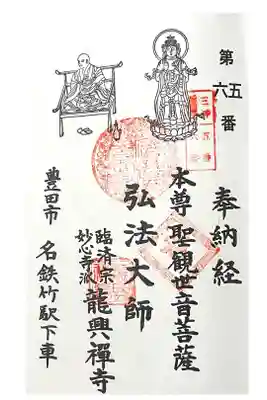 第六五番
奉納経
本尊聖観世音菩薩
弘法大師
臨済宗
妙心寺派
龍興禅寺
豊田市 名鉄竹駅下車